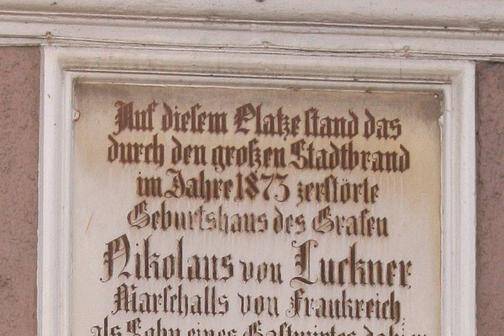 Auf diesem Platze stand das
durch den großen Stadtbrand
im Jahre 1873 zerstörte
Geburtshaus des Grafen
Nikolaus von Luckner,
Marschalls von Frankreich,
als Sohn eines Gastwirtes